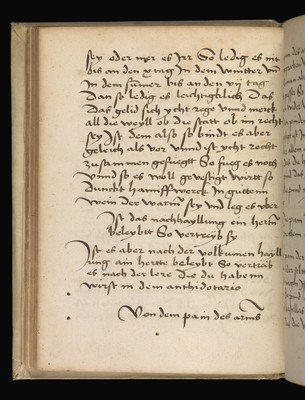 sey oder mer es Jrr So ledig es nit
bis an den x tag Jn dem wintter vnd
Jn dem sumer bis an den vij tag
Dan so ledig es leichtiglich Das
Das gelid sich ycht rege vnnd merck
all die weyll ob die statt ob im recht
sey Jst dem also so bindt es aber
geleich als vor vnnd ist ycht recht
zusammen gefuegtt So fueg es noch
vnnd so es woll gevestigt wirtt so
Dunckt hanffwerck Jn guttem
wein der warm sey vnd leg es vber
Jst das nachhayllung ein hertte
beleybtt So vertreyb sy
Jst es aber nach der volkumen hayll
ung ain hertte beleybt So vertreib
es nach der lere die du habenn
wirst in dem anthidotario
Von dem pain des arms